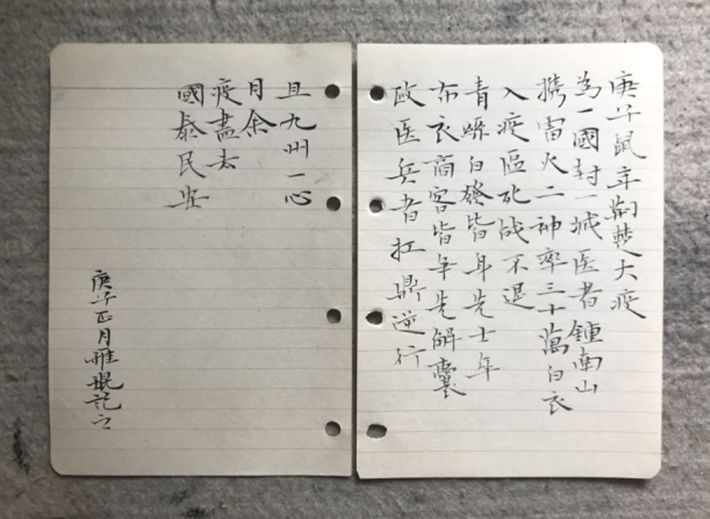 庚子鼠年荆楚大疫
為一國封一城医者鍾南山
携雷火二神率三十萬白衣
入疫區死战不退
青絲白發皆身先士卒
布衣商客皆争先解囊
政医兵者扛鼎逆行
且九州一心
月余
疫盡去
國泰民安
庚子正月雅琨記之